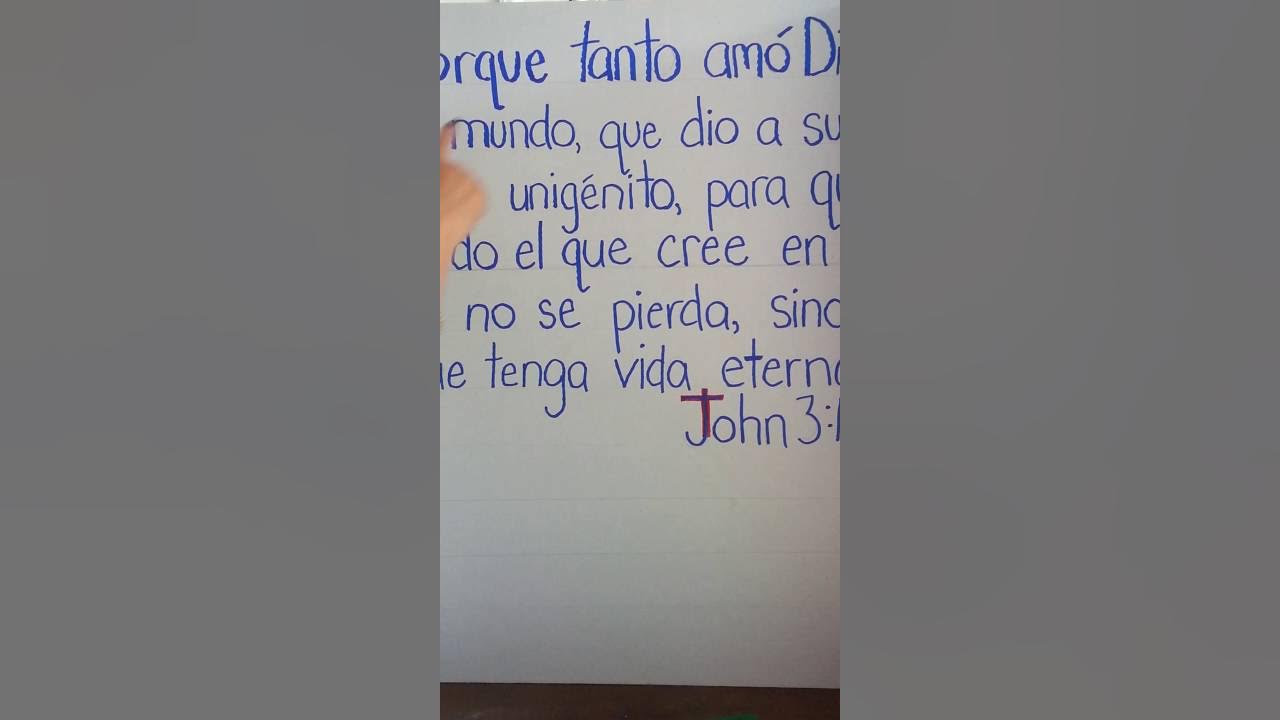 orque tanto amó Di
mundo, que dio a su
unigénito, para qu
do el que cree en
no se pierda, sino
ue tenga vida eterna
John 3:1